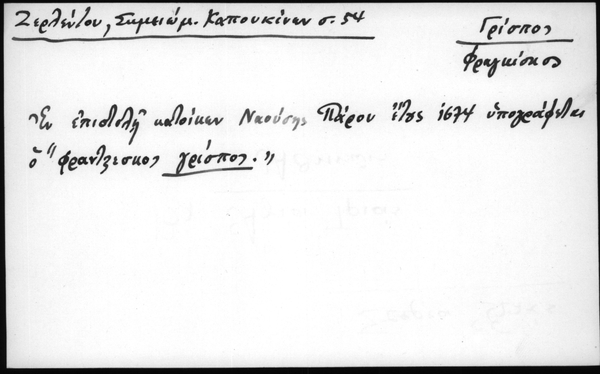 Ζερλέντου, Σημειώμ. Καπουκίνων σ. 54
Γρίσπος
Φραγκίσκος
Ἐν ἐπιστολῇ κατοίκων Ναούσης Πάρου ἔτους 1674 ὑπογράφεται
ὁ "φραντζεσκος γρίσπος."